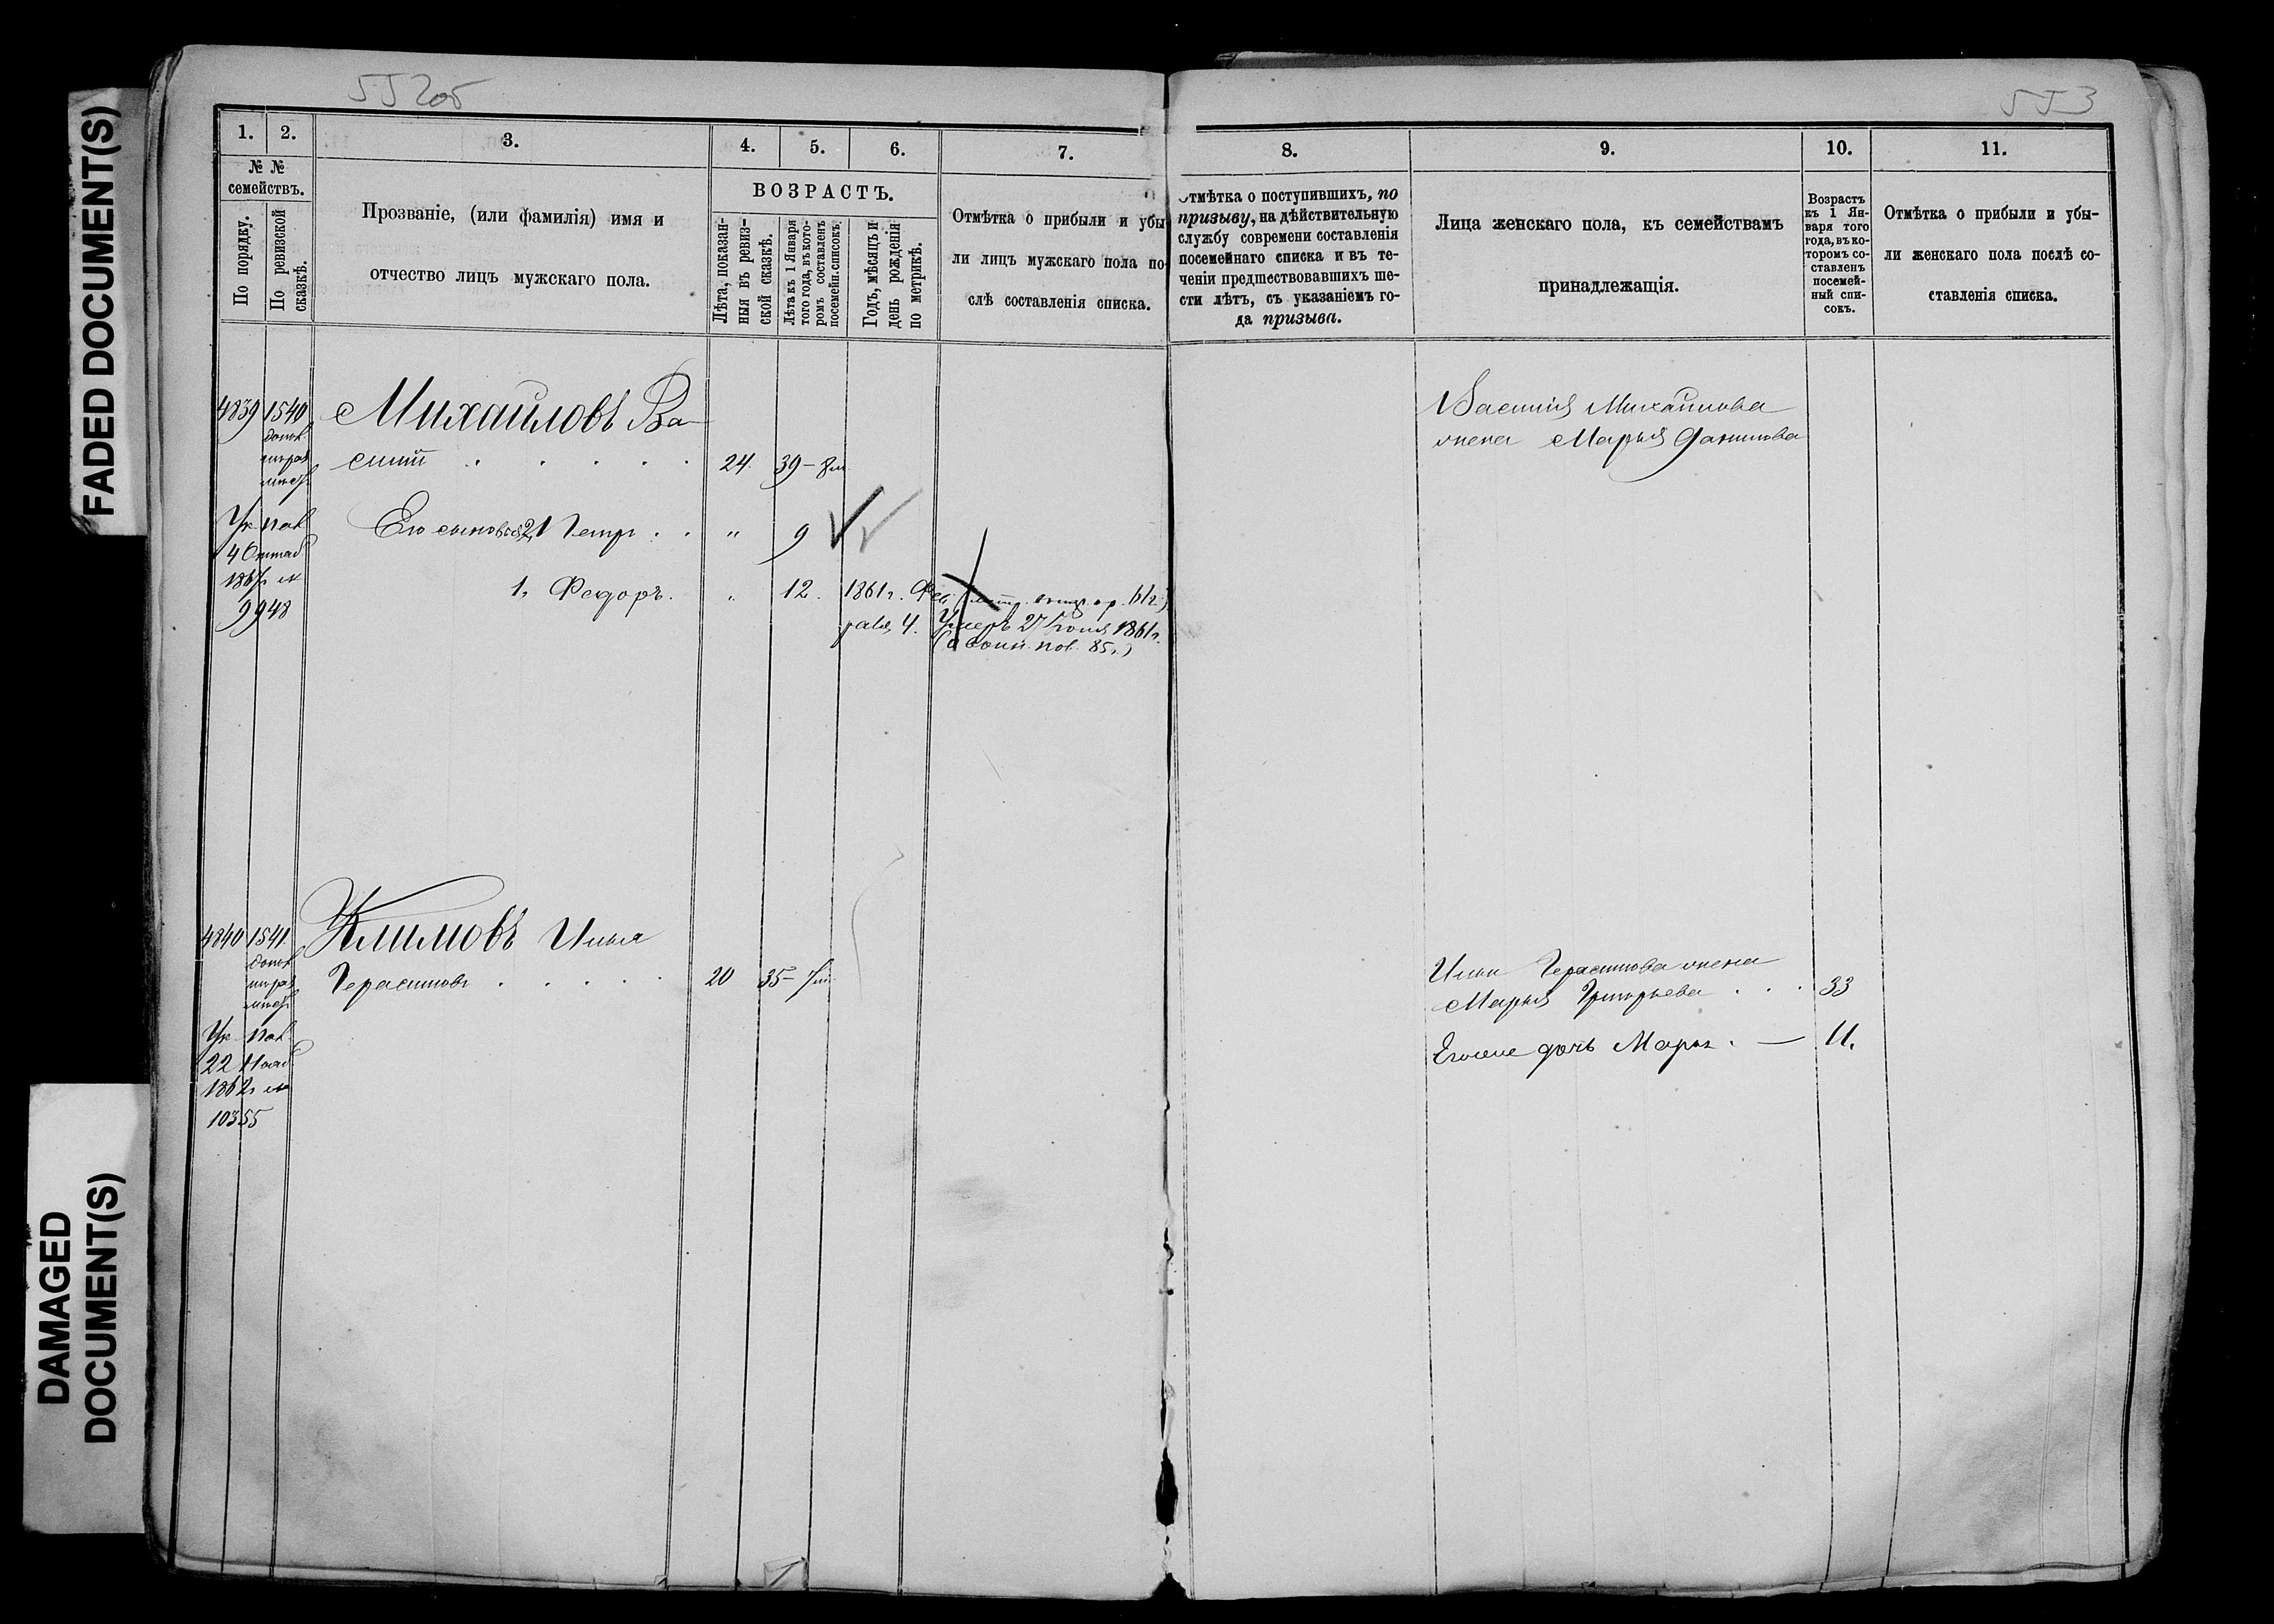 FADED DOCUMENT(S)
DAMAGED
DOCUMENT(S)
552об
553
1. 2. 3. 4. 5. 6. 7.
№ №
семействъ.
По порядку.
По ревизской
сказкѣ.
Прозваніе, (или фамилія) имя и
отчество лицъ мужскаго пола.
ВОЗРАСТЪ.
Лѣта, показан-
ныя въ ревиз-
ской сказкѣ.
Лѣта къ 1 Января
того года, въ кото-
ромъ составленъ
посемейн. списокъ.
Годъ, мѣсяцъ и
день рожденія
по метрикѣ.
Отмѣтка о прибыли и убы
ли лицъ мужскаго пола по-
слѣ составленія списка.
8. 9. 10. 11.
Отмѣтка о поступившихъ, по
призыву, на дѣйствительную
службу современи составленія
посемейнаго списка и въ те-
ченіи предшествовавшихъ ше-
сти лѣтъ, съ указаніемъ го-
да призыва.
Лица женскаго пола, къ семействамъ
принадлежащія.
Возрастъ
къ 1 Ян-
варя того
года, въ ко-
торомъ со-
ставленъ
посемей-
ный спи-
сокъ.
Отмѣтка о прибыли и убы-
ли женскаго пола послѣ со-
ставленія списка.
4839 1540 Михайловъ Ва-
силій 24. 39-8м
Ук. пал.
1867г. №
9948
Его сыновья 2, Петръ " 9
1, Федоръ. " 12. 1861г. Фев
раля 4. Умеръ 27 Іюня 1861г.
Василія Михайлова
жена Марья Данилова
4840 1541. Климовъ Илья
Герасимовъ 20 35-7м.
Ук. пал.
22 Нояб.
1862г. №
10355
Ильи Герасимова жена
Марья Григорьева 33
Его же дочь Марья. — 11.